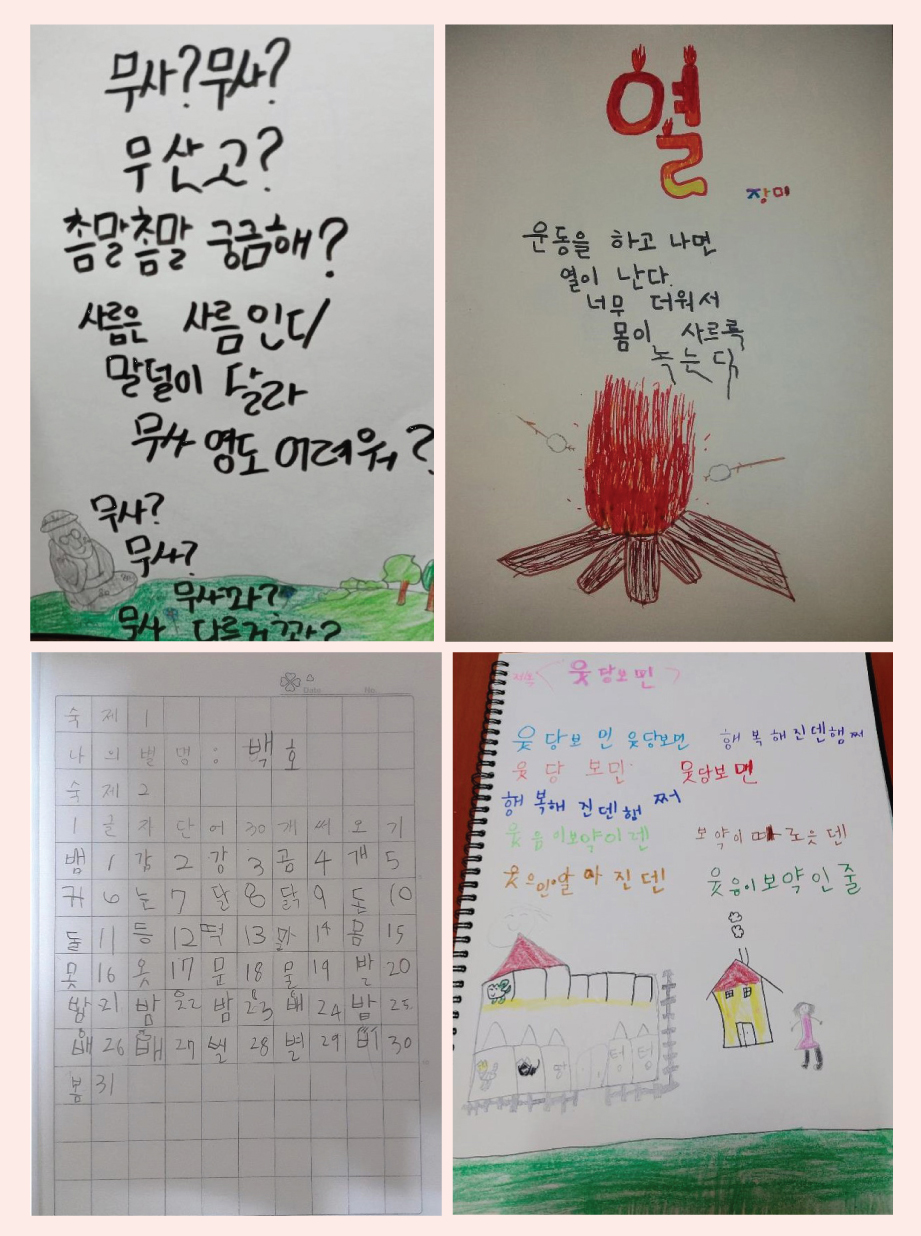 무사?무사?
무산고?
촘말촘말 궁금해?
사름은 사름인디
말덜이 달라
무사 영도 어려워?
무사?
무사?
무사과?
무사 다르거꽈?
열
장미
운동을 하고 나면
열이 난다.
너무 더워서
몸이 사르륵
녹는다
숙제1
나의별명: 백호
숙제2
1글자단어30개써오기
뱀1감2강3곰4개5
귀6눈7달8닭9돈10
돌11등12떡13 14몸15
못16옷17문18물19발20
밥21밤22밤23 24밥25
26 27 28별29 30
봄31
제목 웃당보민
웃당보민 웃당보면 행복해진덴햄쩌
웃당보민 웃당보면
행복해진덴햄쩌
웃음이보약이렌 보약이 따로읏덴
웃음이보약인줄
텅텅